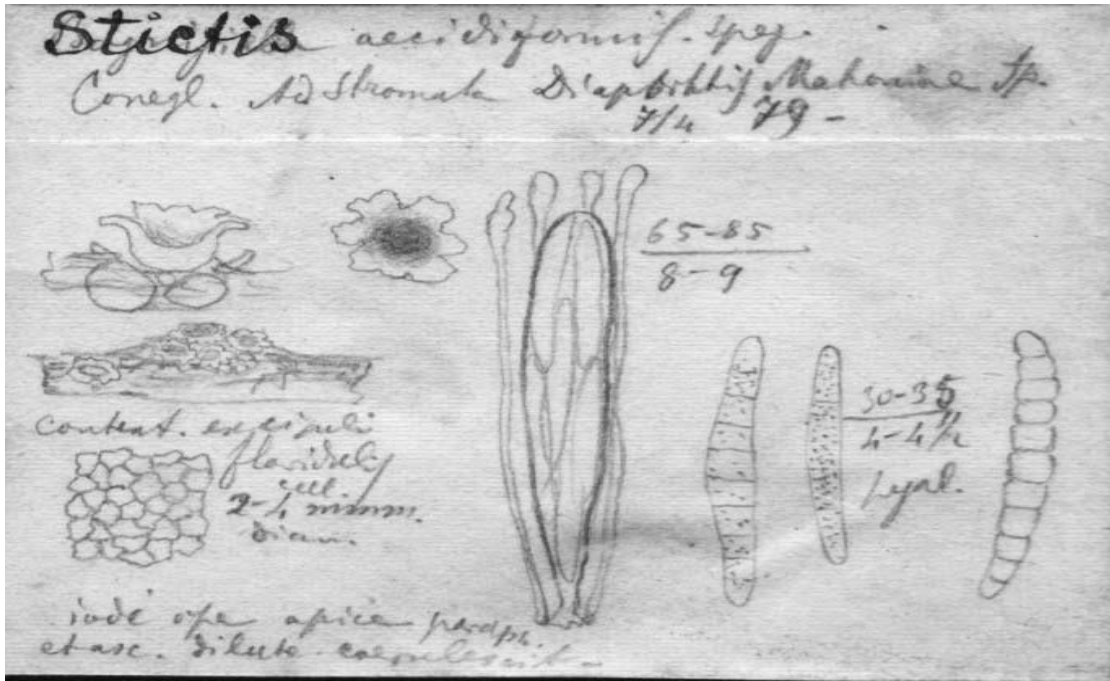 Stictis aecidiiformis. speg.
Conegl. Ad Stromata Diaporthis Mahoniae Sp.
7/4 79 -
65-85
8-9
30-35
4-4½
hyal.
context. excipuli
cell.
2-4 mmm.
diam.
iodi ope apice paraph.
et asc. dilute coerulescit -